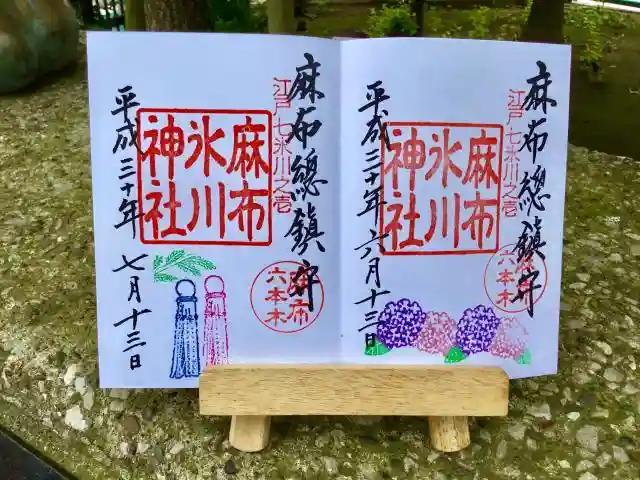 江戸七氷川之壱
麻布總鎮守
麻布
氷川
神社
麻布
六本木
平成三十年六月十一日
江戸七氷川之壱
麻布總鎮守
麻布
氷川
神社
麻布
六本木
平成三十年七月十三日